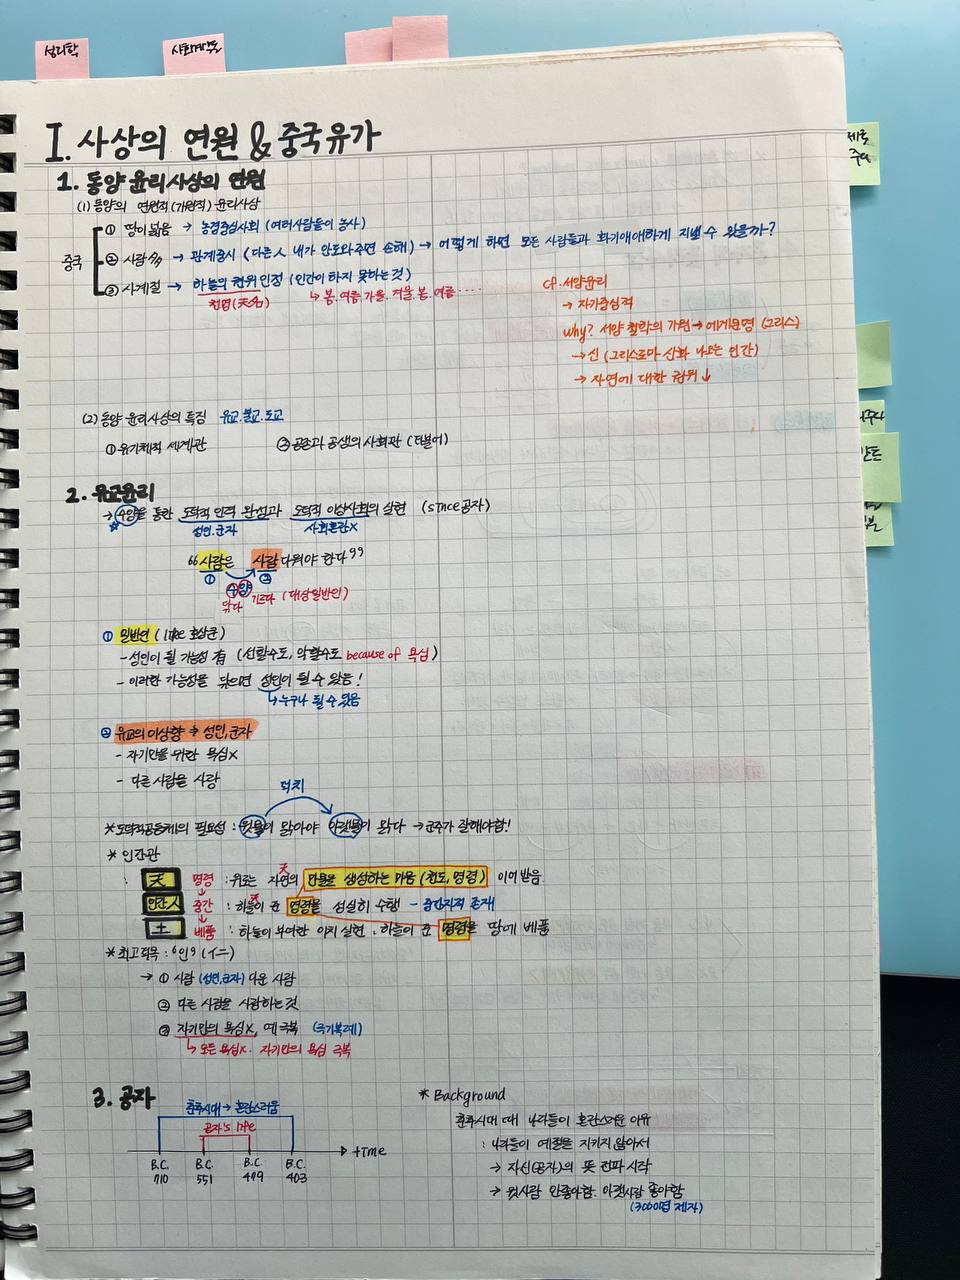 성리학
사회계약론
제논
I. 사상의 연원 & 중국유가
1. 동양 윤리사상의 연원
(1) 동양의 연원적 (기원적) 윤리사상
중국
① 땅이 넓음 → 농경중심사회 (여러사람들이 농사)
② 사람 多 → 관계중시 (다른人 내가 안도와주면 손해) → 어떻게 하면 모든 사람들과 화기애애하게 지낼 수 있을까?
③ 사계절 → 하늘의 권위 인정 (인간이 하지 못하는 것)
천명(天命) ↳ 봄.여름.가을.겨울.봄.여름.....
cf. 서양윤리
→ 자기중심적
why? 서양 철학의 기원 → 에게문명 (그리스)
→ 신 (그리스로마 신화 나오는 인간)
→ 자연에 대한 권위↓
(2) 동양 윤리사상의 특징 유교.불교.도교
① 유기체적 세계관 ② 공존과 공생의 사회관 (더불어)
2. 유교윤리
→ 수양을 통한 도덕적 인격 완성과 도덕적 이상사회의 실현 (since 공자)
성인.군자 사회혼란X
“사람은 사람다워야 한다”
① ②
수양
닦다 기르다 (대상일반인)
① 일반인 (like 호상군)
- 성인이 될 가능성 有 (선할수도, 악할수도 because of 욕심)
- 이러한 가능성을 닦으면 성인이 될 수 있음!
↳ 누구나 될 수 있음
② 유교의 이상향 → 성인,군자
- 자기만을 위한 욕심X
- 다른 사람을 사랑
덕치
* 도덕적공동체의 필요성 : 윗물이 맑아야 아랫물이 맑다 → 군주가 잘해야함!
* 인간관
: 天 명령 : 위로는 자연의 만물을 생성하는 마음 (천도, 명령) 이어받음
天
인간人 중간 : 하늘이 준 명령을 성실히 수행 - 중간자적 존재
天
土 베품 : 하늘이 부여한 이치 실현. 하늘이 준 명령을 땅에 베품
* 최고덕목 : '인' (イ二)
→ ① 사람 (성인,군자) 다운 사람
② 다른 사람을 사랑하는 것
③ 자기만의 욕심X, 예 극복 (극기복례)
↳ 모든 욕심X. 자기만의 욕심 극복
3. 공자
춘추시대 → 혼란스러움
공자's life
time
B.C. B.C. B.C. B.C.
710 551 479 403
* Background
춘추시대 때 나라들이 혼란스러운 이유
: 나라들이 예절을 지키지 않아서
→ 자신(공자)의 뜻 전파 시작
→ 윗사람 안좋아함. 아랫사람 좋아함
(3000명 제자)